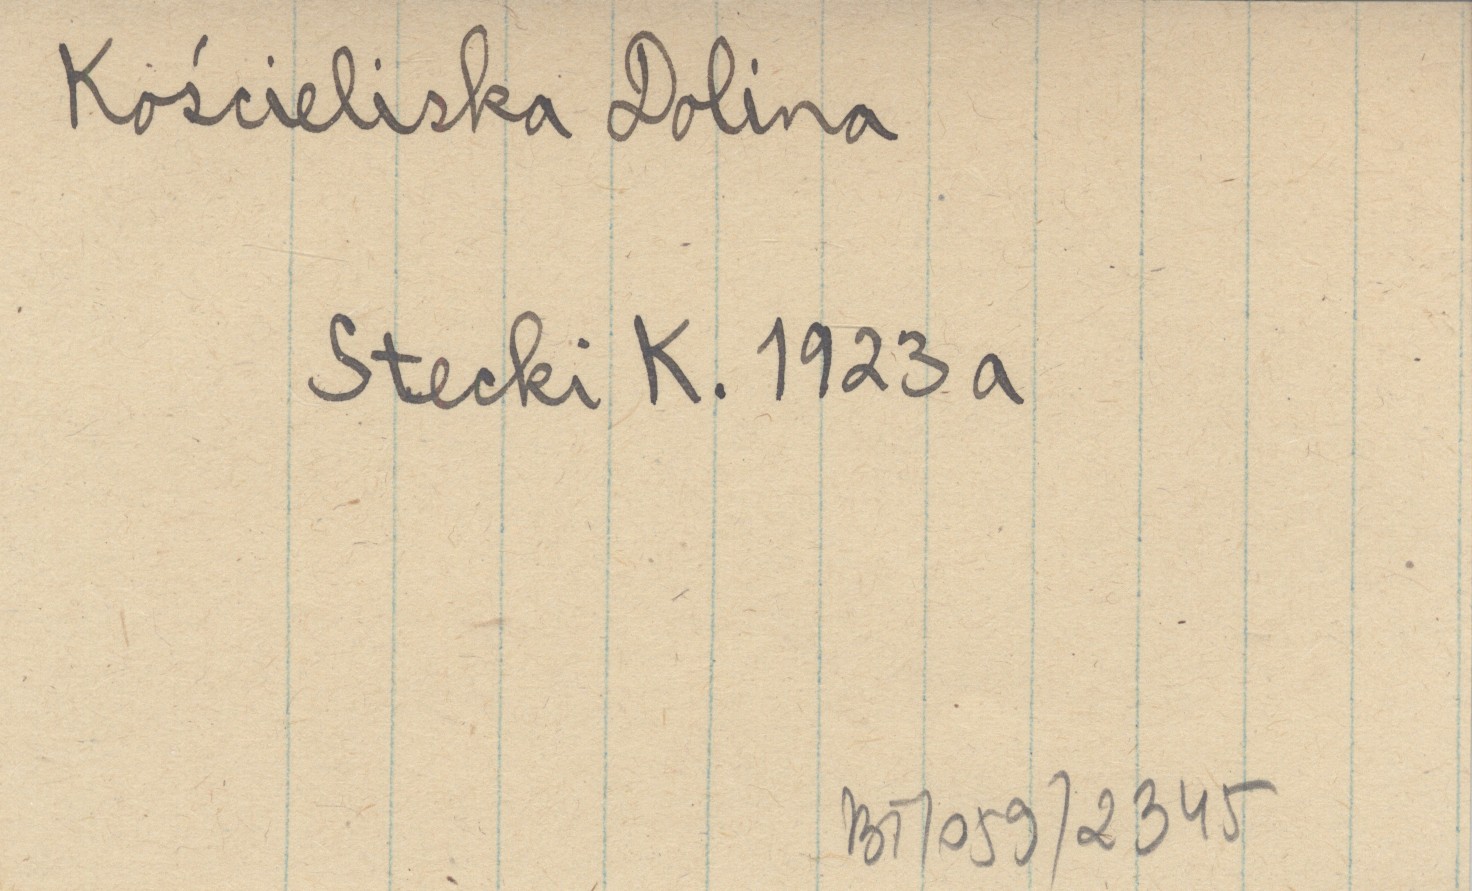 Kościeliska Dolina
Stecki K. 1923 a
BT/059/2345